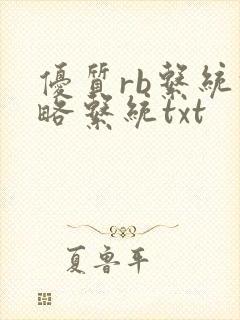 優質rb繫統
略繫統txt
夏魯平